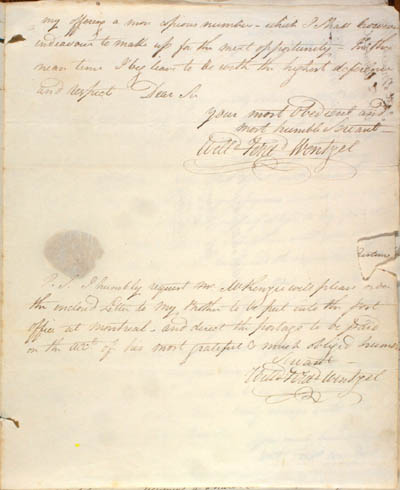 my offering a more copious number – which I shall however
endeavour to make up for the next opportunity – In the
mean time I beg leave to be with the highest deference
and respect Dear Sir
your most obedient and
most humble Servant –
Will.d Ferd.d Wentzel
P. S. I humbly request Mr. McKenzie will please order
the enclosed letter to my Mother to be put into the post
office at Montreal – and direct the postage to be paid
on the acct. of his most grateful & much obliged humble
Servant –
Will.d Ferd.d Wentzel